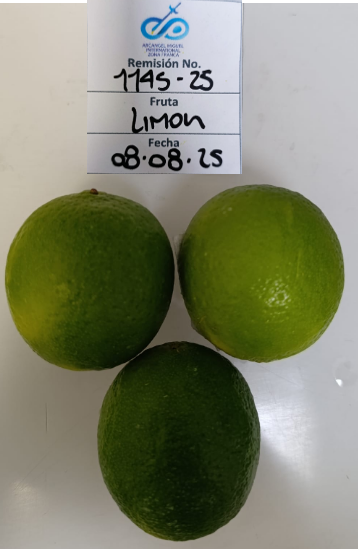 ARCANGEL MIGUEL
INTERNATIONAL
ZONA FRANCA
Remisión No.
1145-25
Fruta
LIMON
Fecha
08.08.25